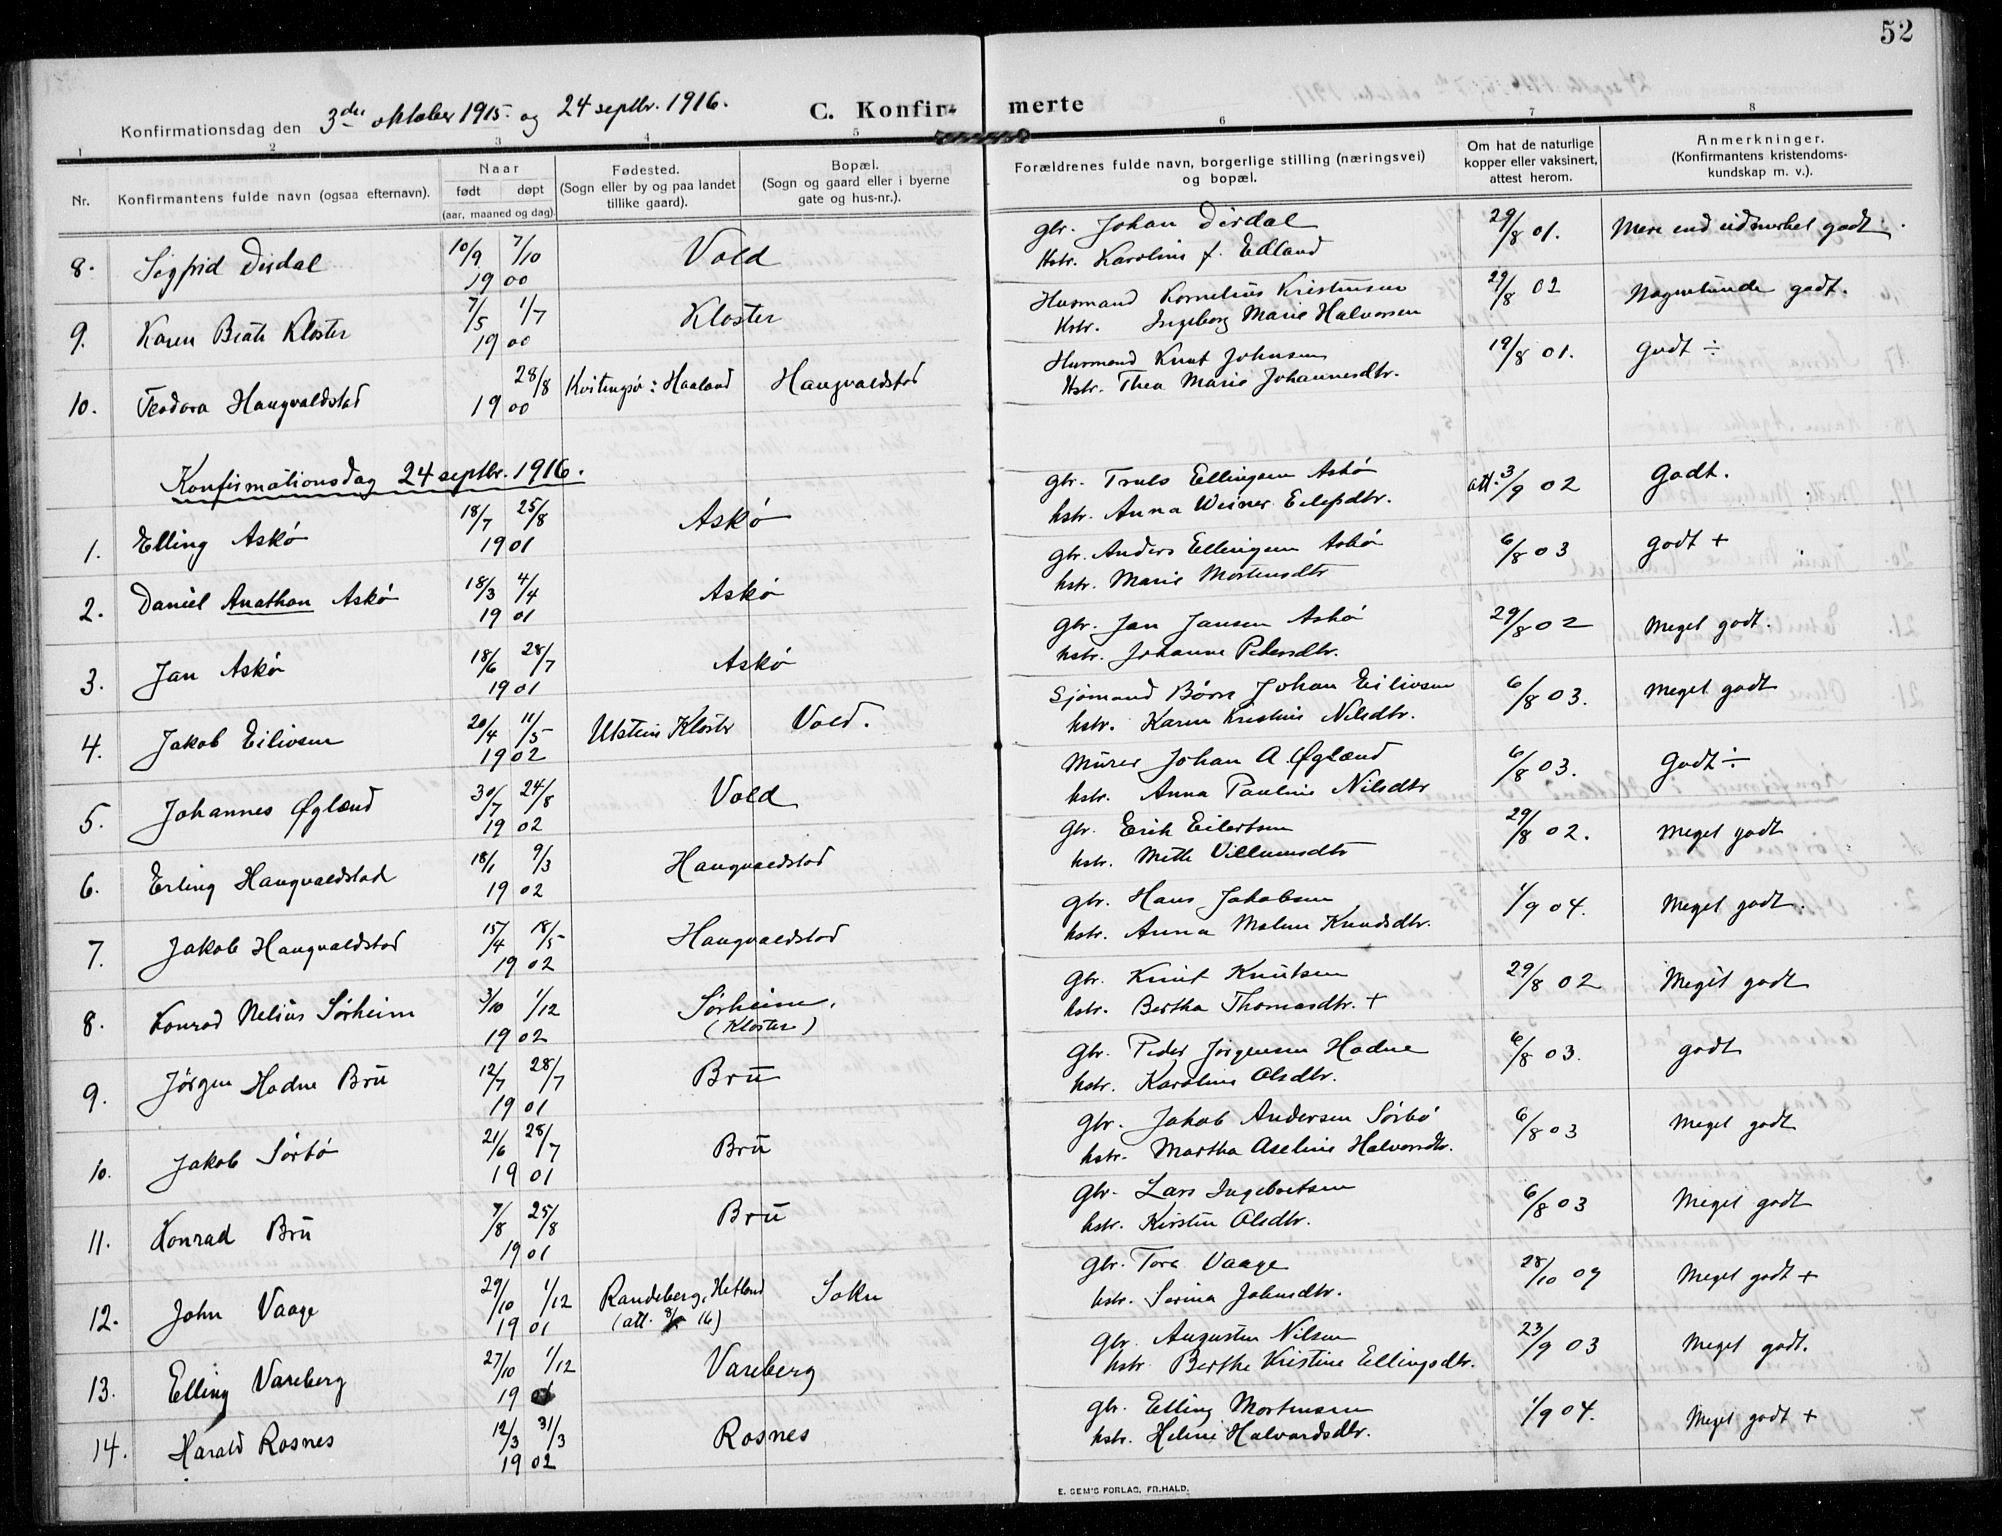 52
Konfirmationsdag den 3die oktober 1915. og 24 septbr. 1916.
C. Konfirmerte
1 2 3 4 5 6 7 8
Nr.
Konfirmantens fulde navn (ogsaa efternavn).
Naar
født døpt
(aar, maaned og dag).
Fødested.
(Sogn eller by og paa landet
tillike gaard).
Bopæl.
(Sogn og gaard eller i byerne
gate og hus-nr.).
Forældrenes fulde navn, borgerlige stilling (næringsvei)
og bopæl.
Om hat de naturlige
kopper eller vaksinert,
attest herom.
Anmerkninger.
(Konfirmantens kristendoms-
kundskap m. v.).
8. Sigfrid Dirdal 10/9 7/10 Vold gbr. Johan Dirdal 29/8 01. Mere end udmerket godt.
1900 Hstr. Karoline f. Edland
9. Karen Beate Kloster 7/5 1/7 Kloster Husmand Kornelius Kristensen 29/8 02 Nogenlunde godt.
1900 Hstr. Ingeborg Marie Halvorsen
10. Teodora Haugvaldstad 28/8 Kvitingsø: Haaland Haugvaldstad Husmand Knut Johnsen 19/8 01. Godt ÷
1900 Hstr. Thea Marie Johannesdtr.
Konfirmationsdag 24 septbr. 1916.
1. Elling Askø 18/7 25/8 Askø gbr. Truls Ellingsen Askø att. 3/9 02 Godt.
1901 hstr. Anna
2. Daniel Anathon Askø 18/3 4/4 Askø gbr. Anders Ellingsen Askø 6/8 03 godt +
1901 hstr. Marie Mortensdtr
3. Jan Askø 18/6 28/7 Askø Gbr. Jan Jansen Askø 29/8 02 Meget godt.
1901 hstr. Johanne Petersdtr.
4. Jakob Eilivsen 20/4 11/5 Utstein Kloster Vold. Sjømand Børre Johan Eilivsen 6/8 03. Meget godt
1902 hstr. Karen Kristine Nilsdtr.
5. Johannes Øglænd 30/7 24/8 Vold Murer Johan A. Øglænd 6/8 03. Godt ÷
1902 hstr. Anna Pauline Nilsdtr
6. Erling Haugvaldstad 18/1 9/3 Haugvaldstad Gbr. Erik Eilertsen 29/8 02. Meget godt
1902 hstr. Mette Villumsdtr
7. Jakob Haugvaldstad 15/4 18/5 Haugvaldstad gbr. Hans Jakobsen 1/9 04. Meget godt.
1902 hstr. Anna Malene Knudsdtr.
8. Konrad Nelius Sørheim 3/10 1/12 Sørheim. Gbr. Knut Knutsen 29/8 02 Meget godt
1902 (Kloster) hstr. Bertha Thomasdtr. +
9. Jørgen Hodne Brū 12/7 28/7 Brū Gbr. Peder Jørgensen Hodne 6/8 03. godt
1901 hstr. Karoline Olsdtr.
10. Jakob Sørbø 21/6 28/7 Brū Gbr. Jakob Andersen Sørbø 6/8 03 Meget godt
1901 hstr. Martha Aseline Halvorsdtr.
11. Konrad Brū 7/8 25/8 Brū Gbr. Lars Ingebretsen 6/8 03 Meget godt
1901 hstr. Kirstin Olsdtr.
12. John Vaage 29/10 1/12 Randeberg, Hetland Sokn Gbr. Tore Vaage 28/10 09 Meget godt +
1901 (att. 16) hstr. Serina Johnsdtr.
13. Elling Vareberg 27/10 1/12 Vareberg Gbr. Augustin Nilsen 23/9 03 Meget godt.
1901 hstr. Berthe Kristine Ellingsdtr.
14. Harald Rosnes 12/3 31/3 Rosnes gbr. Elling Mortensen 1/9 04. Meget godt +
1902 hstr. Heline Halvardsdtr.
E. SEM'S FORLAG, FR.HALD.